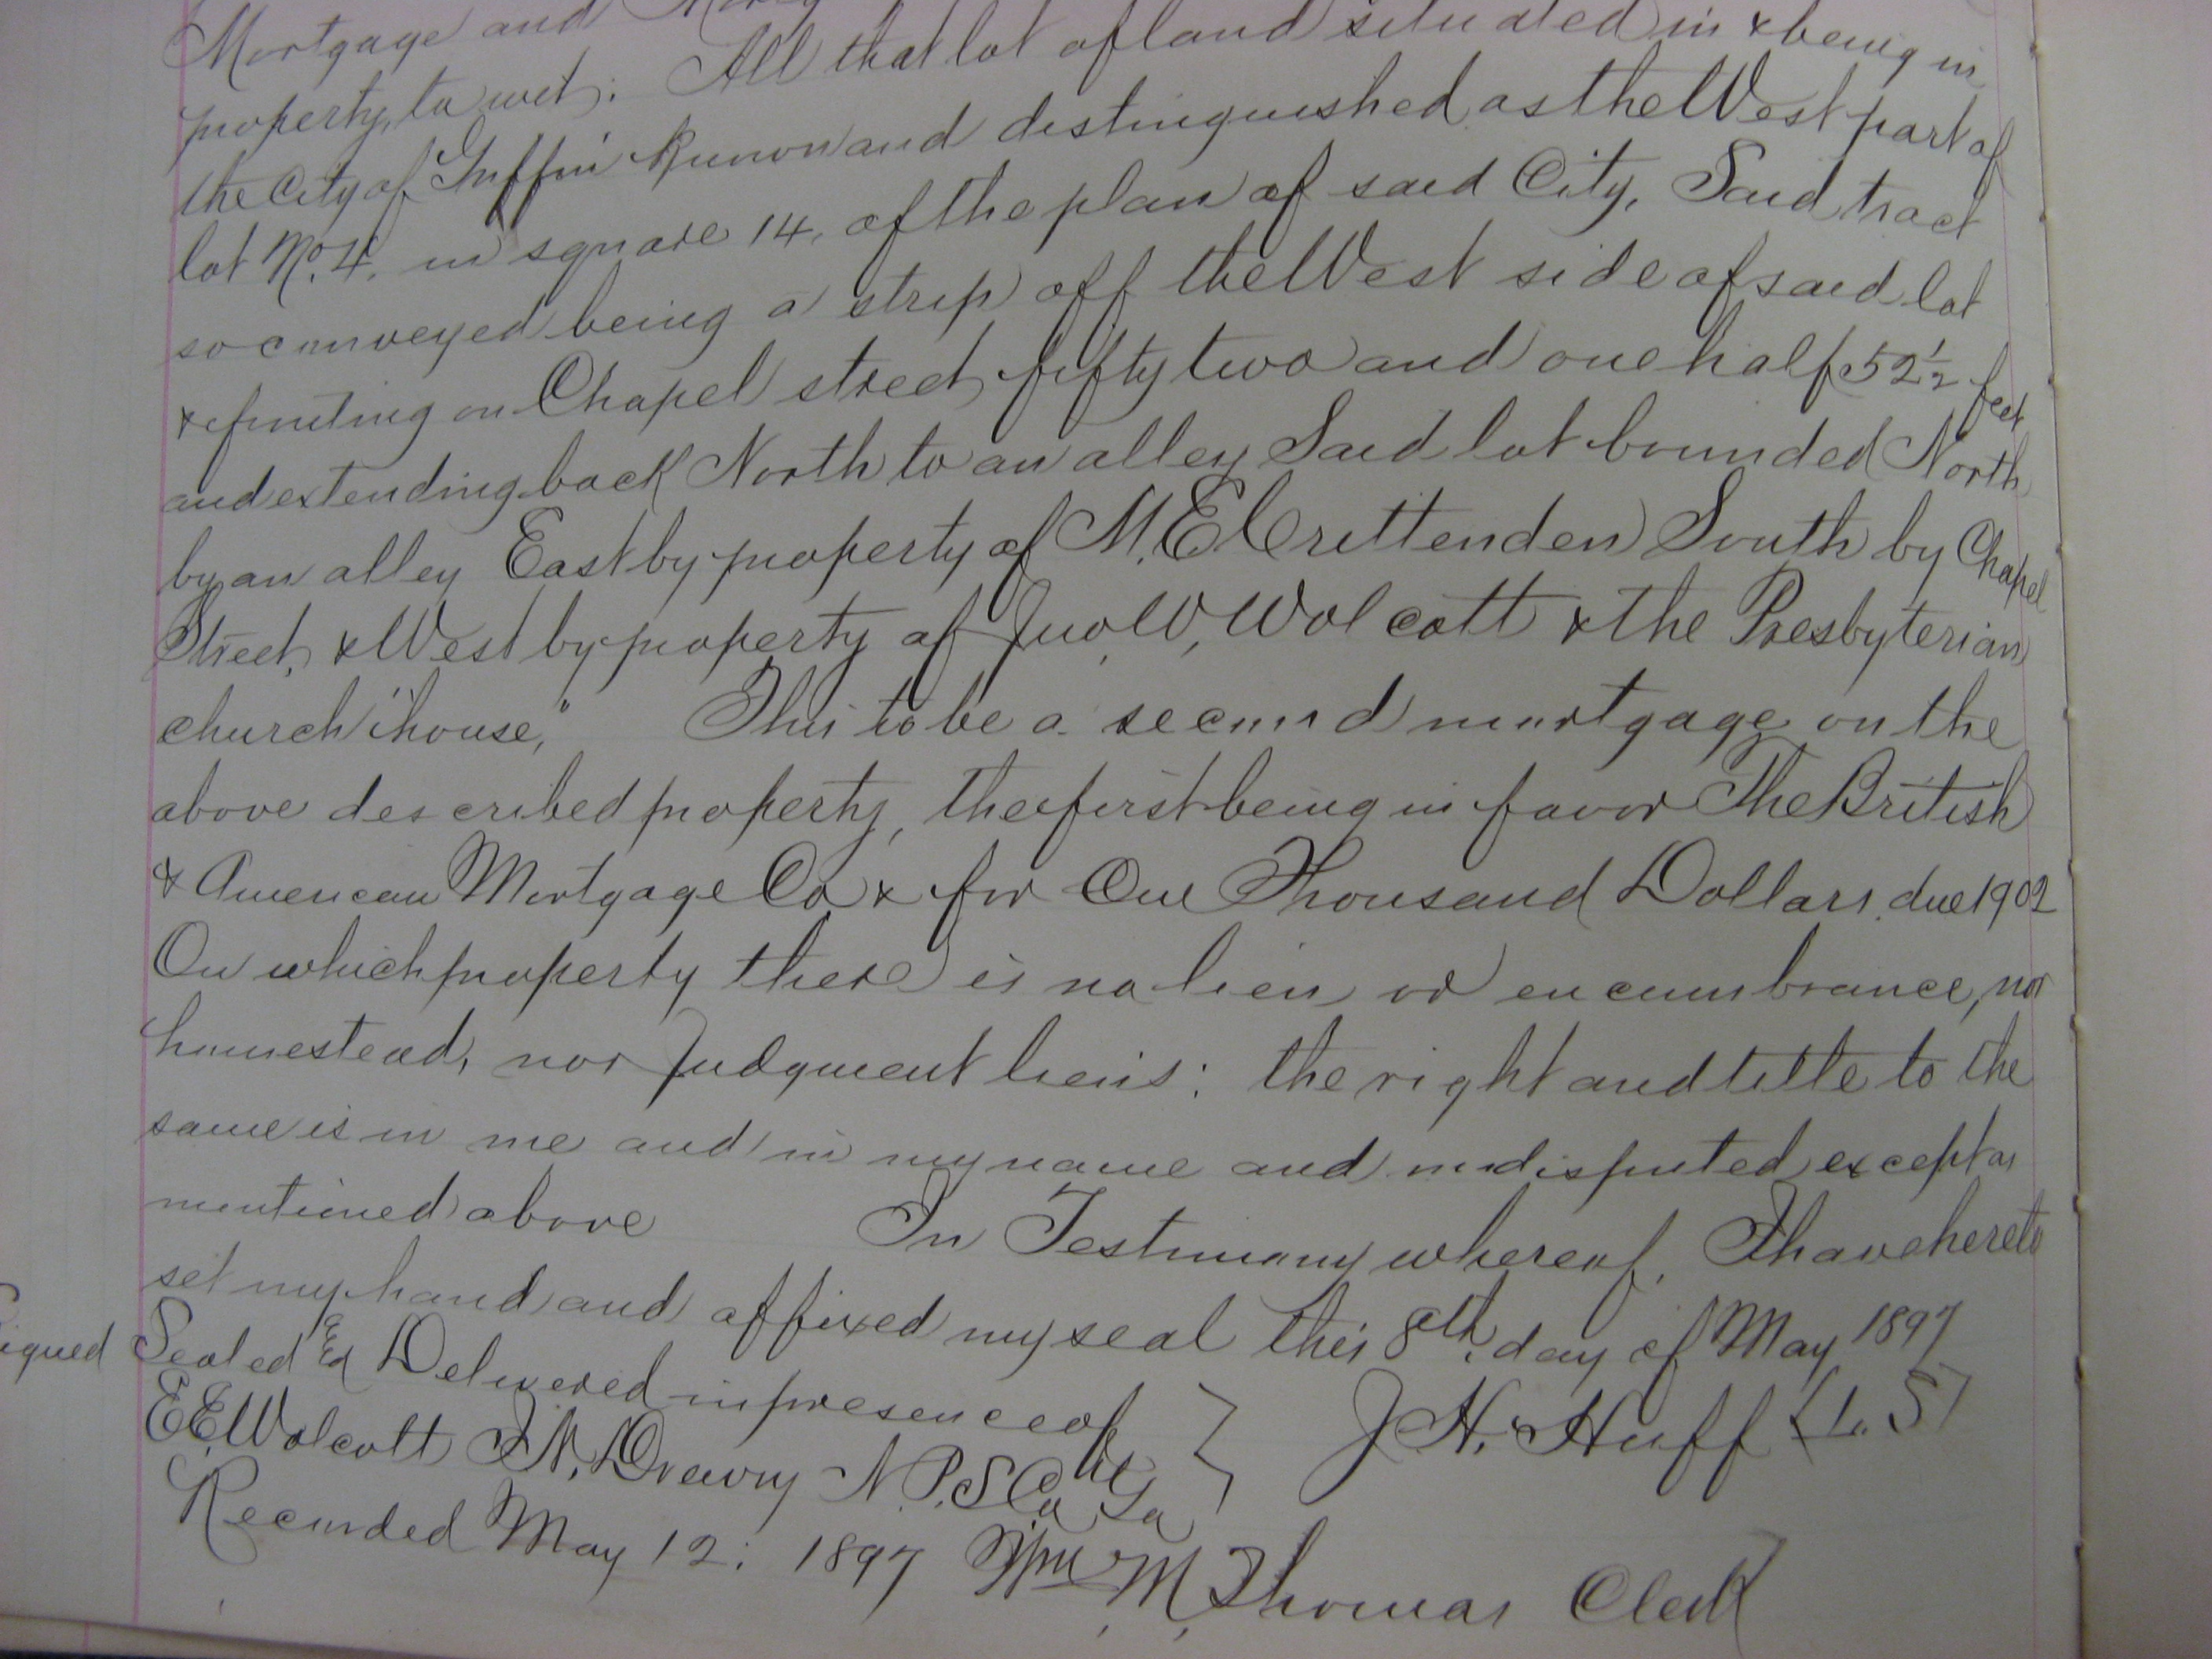 Mortgage and
property, to wit: All that lot of land situated in & being in
the City of Griffin known and distinguished as the West part of
lot No. 4. in square 14, of the plan of said City, Said tract
so conveyed being a strip off the West side of said lot
& fronting on Chapel street fifty two and one half 52½ feet
and extending back North to an alley Said lot bounded North
by an alley East by property of M. E. Crittenden South by Chapel
Street, & West by property of Jno. W. Wolcott & the Presbyterian
church "house," This to be a second mortgage on the
above described property, the first being in favor The British
& American Mortgage Co & for One Thousand Dollars, due 1902
On which property there is no lien or encumbrance, nor
homestead, nor judgment liens: the right and title to the
same is in me and in my name and undisputed except as
mentioned above In Testimony whereof, I have hereto
set my hand and affixed my seal this 8th, day of May 1897
Signed Sealed & Delivered in presence of J. H. Huff (L. S)
E. E. Wolcott N. Drewry N. P. S. Co Ga
Recorded May 12: 1897 Wm M. Thomas Clerk